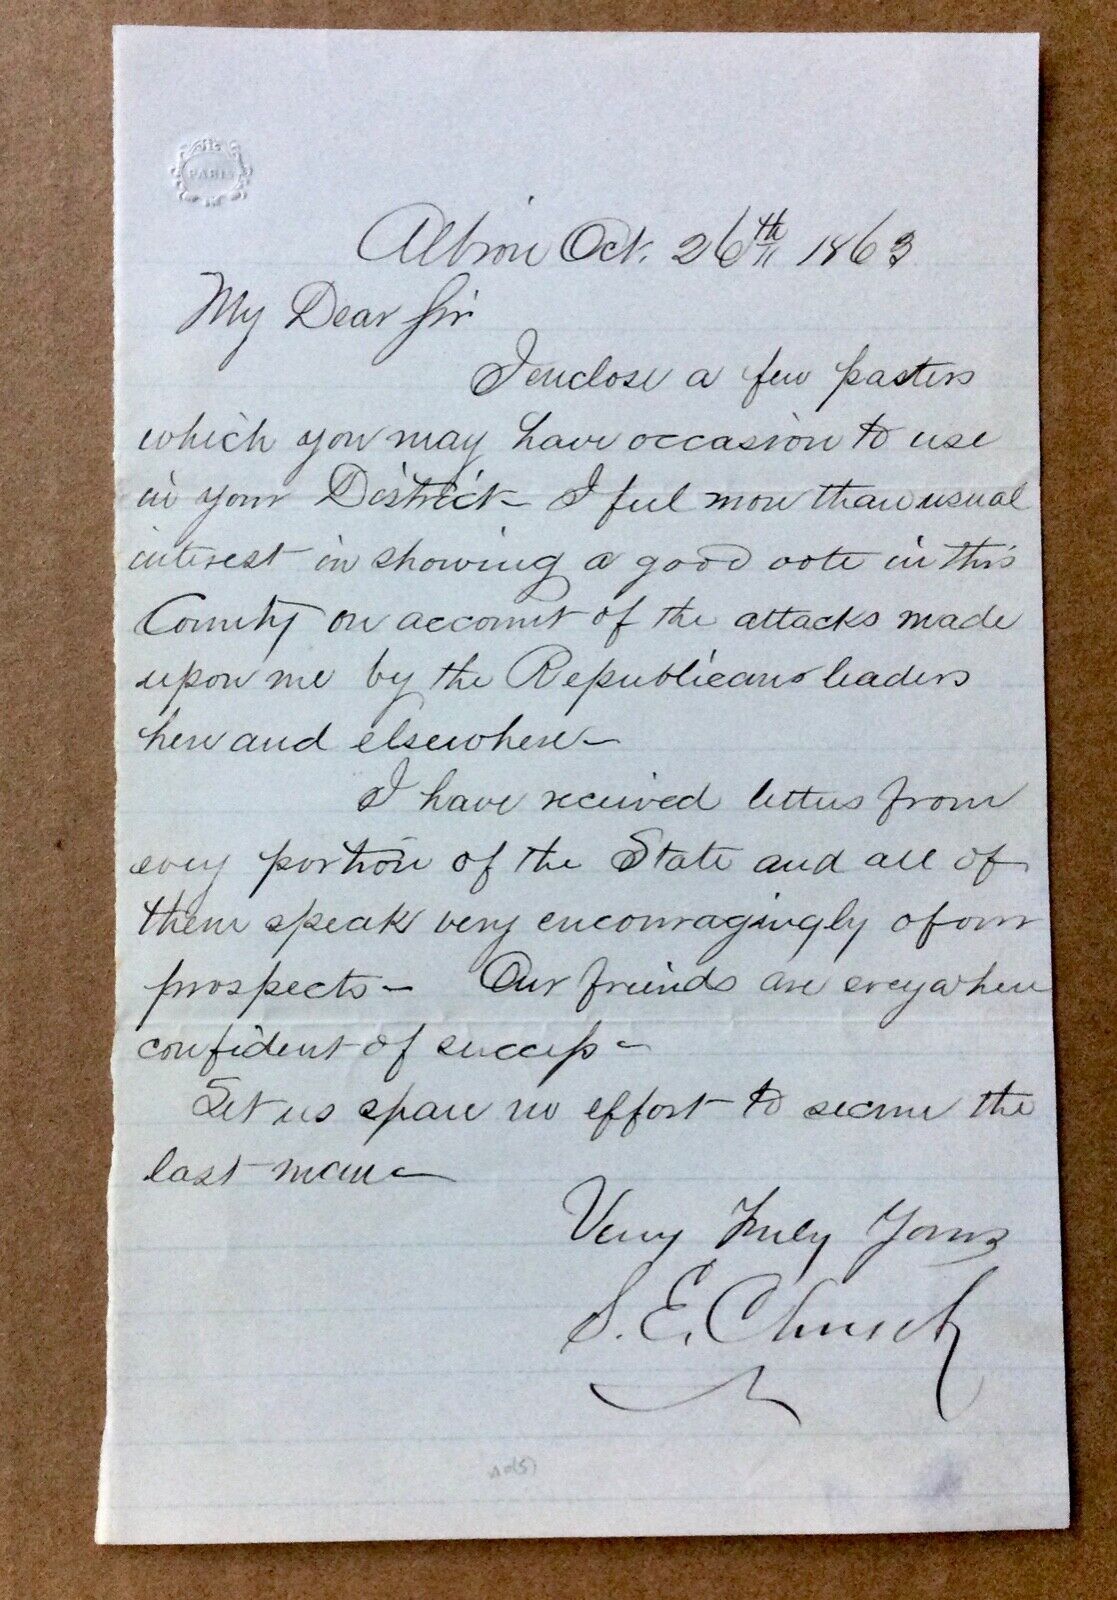 PARIS
Albion Oct. 26th 1863
My Dear Sir
I enclose a few pasters
which you may have occasion to use
in your District - I feel more than usual
interest in showing a good vote in this
County on account of the attacks made
upon me by the Republican leaders
here and elsewhere -
I have received letters from
every portion of the State and all of
them speak very encouragingly of our
prospects - Our friends are everywhere
confident of success -
Let us spare no effort to secure the
last man -
Very Truly Yours
S. E. Church